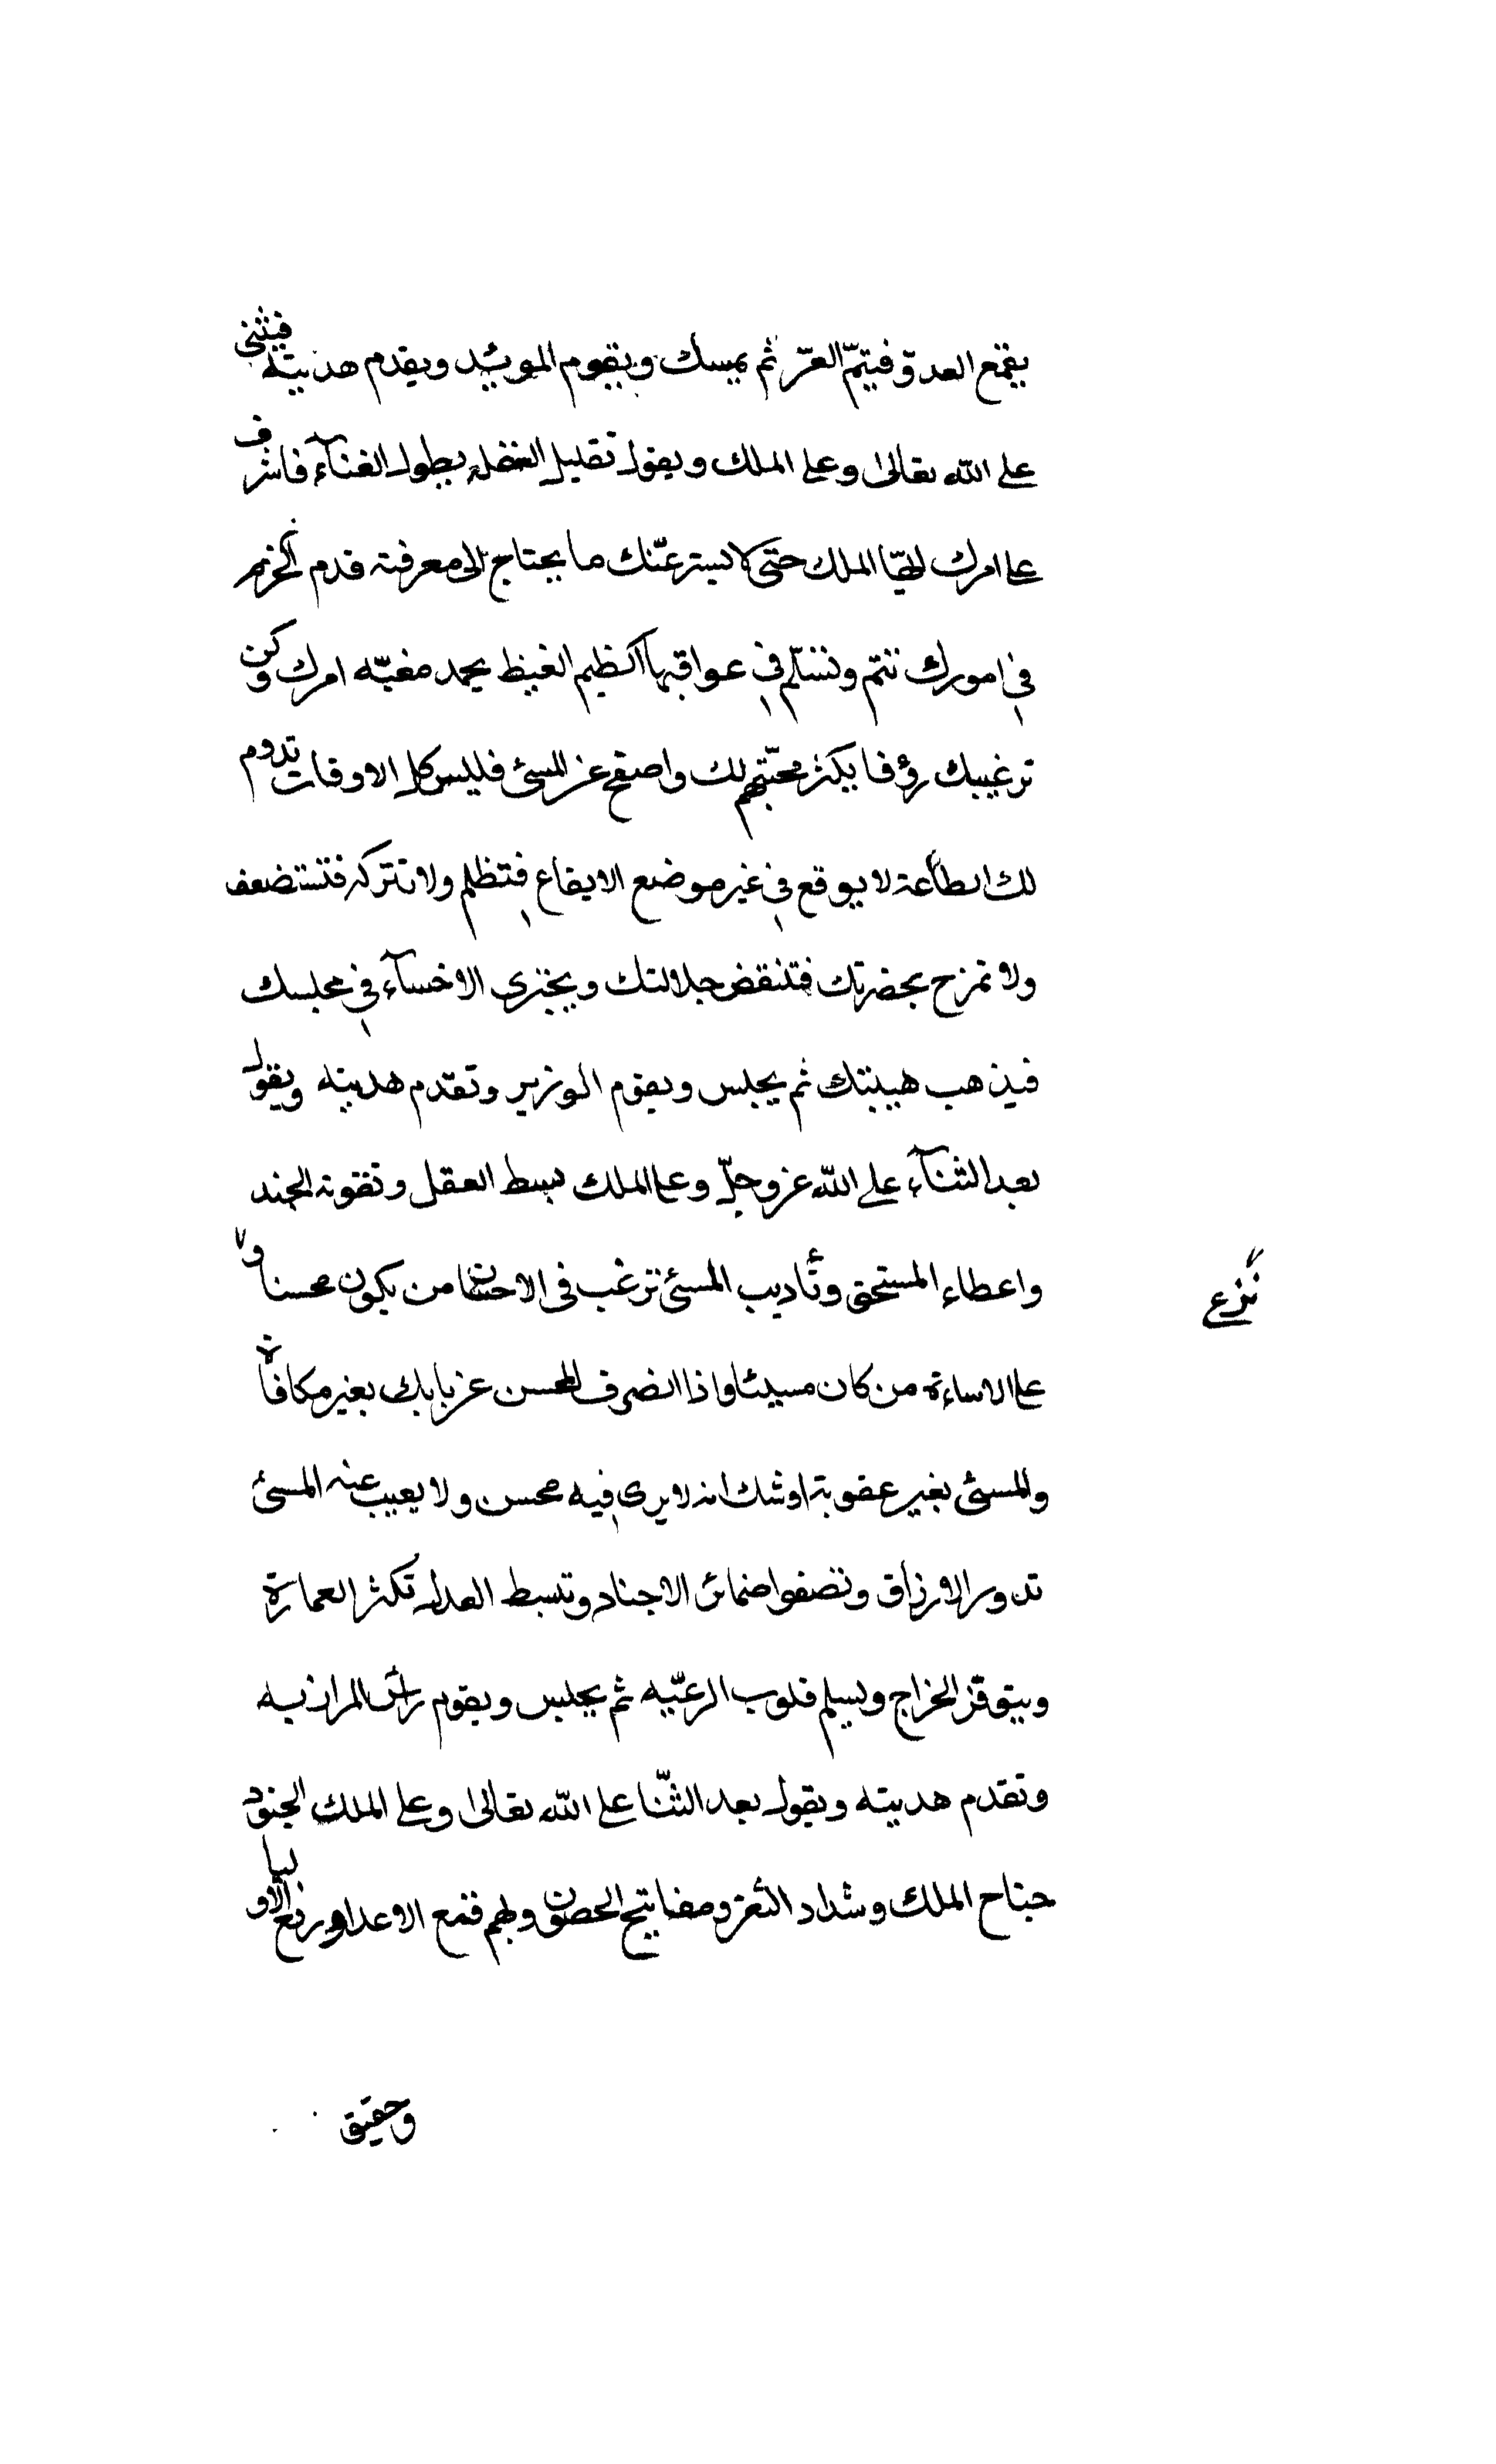 يقمع العدوّ فيتمّ العزّ ثم يمسك ويقوم الموبذ ويقدم هديته فيثنى
على الله تعالى وعلى الملك ويقول تقليل الغفله بطول الغنآء فاشرف
على امرك ايها الملك حتى لا يستر عنّك ما يحتاج الى معرفته قدم الحزم
في امورك تتم وتسلم في عواقبها اكظيم الغيظ يحمد مغبّه امرك وكن
ترغيبك رؤفا يكثر محبّتهم لك واصفح عن المسئ فليس كل الاوقات تدوم
لك الطاعة لا يوقع في غير موضع الايقاع فتظلم ولا تتركه فتستضعف
ولا تمزح بحضرتك فتنقض جلالتك ويجترى الاخسآء في مجلسك
فيذهب هيبتك ثم يجلس ويقوم الوزير وتقدم هديته ويقول
بعد الثنآء على الله عز وجلّ وعلى الملك ببسط العقل وتقوية الجند
واعطاء المستحق وتأديب المسئ ترغب فى الاحسان من يكون محسنا و
نزع
على الاساءة من كان مسيئا واذا انصرف المحسن عن بابك بغير مكافاة
والمسئ بغير عقوبة اوشك انه لا يرى فيه محسن ولا يعيب عنه المسئ
تدور الارزاق وتصفوا ضمائر الاجناد وتبسط العدل تكثر العمارة
ويتوفر الخراج ويسلم قلوب الرعيّه ثم يجلس ويقوم رأس المرازبه
وتقدم هديته ويقول بعد الثنّا على الله تعالى وعلى الملك الجنود
جناح الملك وشداد الثغر ومفاتيح الحصون وبهم قمع الاعدا ورفع الاوليا
وحقيق